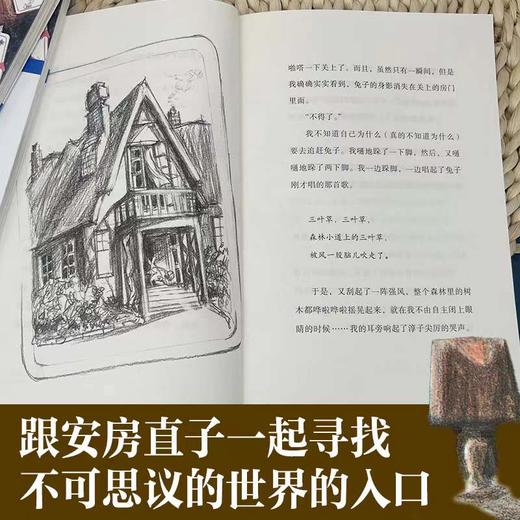 啪嗒一下关上了。而且，虽然只有一瞬间，但是
我确确实实看到，兔子的身影消失在关上的房门
里面。
“不得了。”
我不知道自己为什么（真的不知道为什么）
要去追赶兔子。我嗵地跺了一下脚，然后，又嗵
嗵地跺了两下脚。我一边跺脚，一边唱起了兔子
刚才唱的那首歌。
三叶草，三叶草，
森林小道上的三叶草，
被风一股脑儿吹走了。
于是，又刮起了一阵强风，整个森林里的树
木都哗啦哗啦摇晃起来，就在我不由自主闭上眼
睛的时候……我的耳旁响起了淳子尖厉的哭声。
跟安房直子一起寻找
不可思议的世界的入口